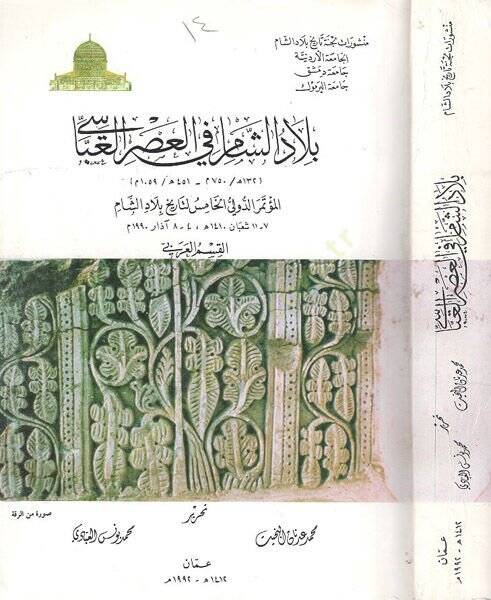 ١٤
منشورات لجنة تاريخ بلاد الشام
الجامعة الأردنية
جامعة دمشق
جامعة اليرموك
بلاد الشام في العصر العباسي
(١٣٢هـ/٧٥٠م - ٤٥١هـ/١٠٥٩م)
المؤتمر الدولي الخامس لتاريخ بلاد الشام
٧-١١ شعبان ١٤١٠هـ، ٤-٨ آذار ١٩٩٠م
القسم العربي
صورة من الرقة
تحرير
محمد عدنان البخيت
محمد يونس العبادي
عمان
١٤١٢هـ - ١٩٩٢م
منشورات لجنة تاريخ بلاد الشام
بلاد الشام في العصر العباسي
محمد عدنان البخيت
تحرير
محمد يونس العبادي
عمان
١٤١٢هـ - ١٩٩٢م